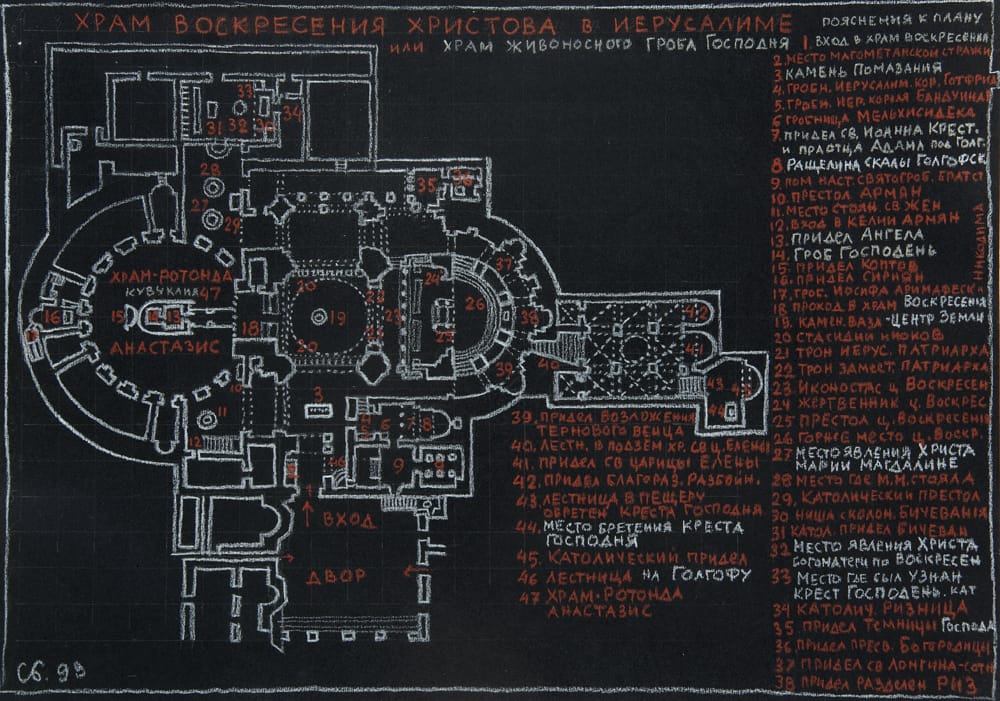 ХРАМ ВОСКРЕСЕНИЯ ХРИСТОВА В ИЕРУСАЛИМЕ
или ХРАМ ЖИВОНОСНОГО ГРОБА ГОСПОДНЯ
ПОЯСНЕНИЯ К ПЛАНУ
1. ВХОД В ХРАМ ВОСКРЕСЕНИЯ
2. МЕСТО МАГОМЕТАНСКОЙ СТРАЖИ
3. КАМЕНЬ ПОМАЗАНИЯ
4. ГРОБН. ИЕРУСАЛИМ. КОР. ГОТФРИД
5. ГРОБН. ИЕР. КОРОЛЯ БАНДУИНА
6 ГРОБНИЦА МЕЛЬХИСИДЕКА
7. ПРИДЕЛ СВ. ИОАННА КРЕСТ.
и ПРАОТЦА АДАМА ПОД ГОЛГ.
8 РАЩЕЛИНА СКАЛЫ ГОЛГОФСК
9. ПОМ. НАСТ. СВЯТОГРОБ. БРАТСТ
10. ПРЕСТОЛ АРМЯН
11. МЕСТО СТОЯН. СВ ЖЕН
12. ВХОД В КЕЛИИ АРМЯН
13. ПРИДЕЛ АНГЕЛА
14. ГРОБ ГОСПОДЕНЬ
15. ПРИДЕЛ КОПТОВ
16. ПРИДЕЛ СИРИЯН
17. ГРОБ. ИОСИФА АРИМАФЕСК И
НИКОДИМА
18 ПРОХОД В ХРАМ ВОСКРЕСЕНИЯ
19. КАМЕН. ВАЗА - ЦЕНТР ЗЕМЛИ
20 СТАСИДИИ ИНОКОВ
21 ТРОН ИЕРУС. ПАТРИАРХА
22 ТРОН ЗАМЕСТ. ПАТРИАРХА
23 ИКОНОСТАС Ц. ВОСКРЕСЕН
24 ЖЕРТВЕННИК Ц. ВОСКРЕС
25 ПРЕСТОЛ Ц. ВОСКРЕСЕНИЯ
26 ГОРНЕЕ МЕСТО Ц. ВОСКР.
27 МЕСТО ЯВЛЕНИЯ ХРИСТА
МАРИИ МАГДАЛИНЕ
28 МЕСТО ГДЕ М.М. СТОЯЛА
29. КАТОЛИЧЕСКИЙ ПРЕСТОЛ
30 НИША С КОЛОН. БИЧЕВАНИЯ
31 КАТОЛ. ПРИДЕЛ БИЧЕВАН
32 МЕСТО ЯВЛЕНИЯ ХРИСТА
БОГОМАТЕРИ ПО ВОСКРЕСЕН
33 МЕСТО ГДЕ БЫЛ УЗНАН
КРЕСТ ГОСПОДЕНЬ. КАТ
34 КАТОЛИЧ. РИЗНИЦА
35 ПРИДЕЛ ТЕМНИЦЫ ГОСПОДА
36 ПРИДЕЛ ПРЕСВ. БОГОРОДИЦЫ
37 ПРИДЕЛ СВ ЛОНГИНА-СОТН
38 ПРИДЕЛ РАЗДЕЛЕН РИЗ
39. ПРИДЕЛ ВОЗЛОЖЕНИЯ
ТЕРНОВОГО ВЕНЦА
40. ЛЕСТН. В ПОДЗЕМ ХР. СВ Ц. ЕЛЕНЫ
41. ПРИДЕЛ СВ ЦАРИЦЫ ЕЛЕНЫ
42. ПРИДЕЛ БЛАГОРАЗ. РАЗБОЙН.
43 ЛЕСТНИЦА В ПЕЩЕРУ
ОБРЕТЕН КРЕСТА ГОСПОДНЯ
44. МЕСТО БРЕТЕНИЯ КРЕСТА
ГОСПОДНЯ
45. КАТОЛИЧЕСКИЙ ПРИДЕЛ
46 ЛЕСТНИЦА НА ГОЛГОФУ
47 ХРАМ-РОТОНДА
АНАСТАЗИС
33
31 32 30 34
28
27
29
35 36
ХРАМ-РОТОНДА
КУВУКЛИЯ 47
16 15 14 13
АНАСТАЗИС
18
20
19
20
22
23
24
25
26
37
38
39
40
42
41
43
45
44
10
11
12
3
6 7 8
9
46
ВХОД
ДВОР
Сб. 99